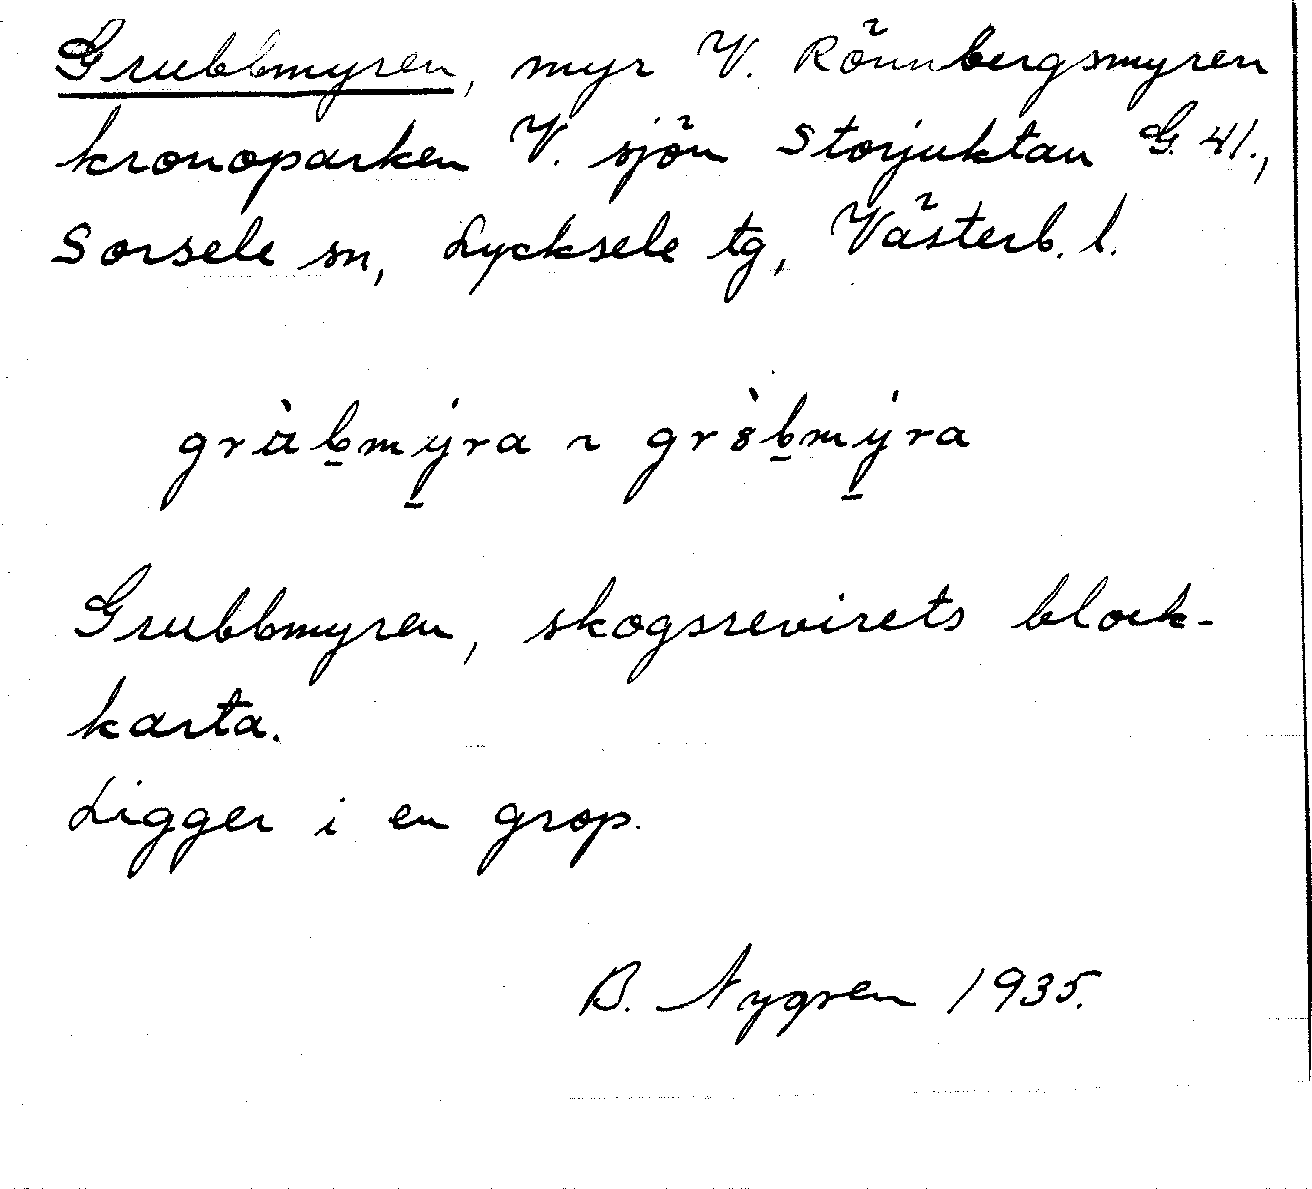 Grubbmyren, myr V. Rönnbergsmyren
kronoparken V. sjön Storjuktan G. 41.,
Sorsele sn, Lycksele tg, Västerb. l.
grùb̲mý̲ra ~ grò̈b̲mý̲ra
Grubbmyren, skogsrevirets block-
karta.
Ligger i en grop.
B. Nygren 1935.